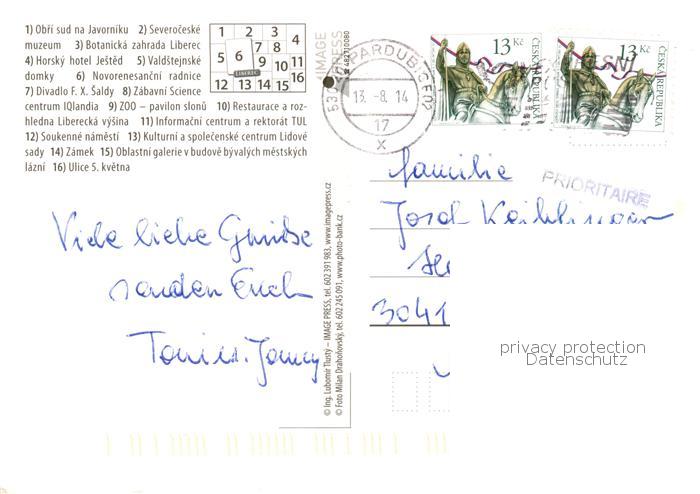 1) Obří sud na Javorníku 2) Severočeské
muzeum 3) Botanická zahrada Liberec
4) Horský hotel Ještěd 5) Valdštejnské
domky 6) Novorenesanční radnice
7) Divadlo F. X. Šaldy 8) Zábavní Science
centrum IQlandia 9) ZOO – pavilon slonů 10) Restaurace a roz-
hledna Liberecká výšina 11) Informační centrum a rektorát TUL
12) Soukenné náměstí 13) Kulturní a společenské centrum Lidové
sady 14) Zámek 15) Oblastní galerie v budově bývalých městských
lázní 16) Ulice 5. května
1 2 3 4
5 6 7 8 10
9 11
LIBEREC
12 13 14 15 16
IMAGE
PRESS
PARDUBICE 02
13.-8. 14
17
X
13 Kč
ČESKÁ REPUBLIKA
13 Kč
ČESKÁ REPUBLIKA
PRIORITAIRE
Familie
Josef
3041
Viele liebe Grüsse
senden Euch
Toni u. Jenny
© Ing. Lubomír Tlustý – IMAGE PRESS, tel. 602 391 983, www.imagepress.cz
© Foto Milan Drahoňovský, tel. 602 245 091, www.photo-bank.cz
privacy protection
Datenschutz